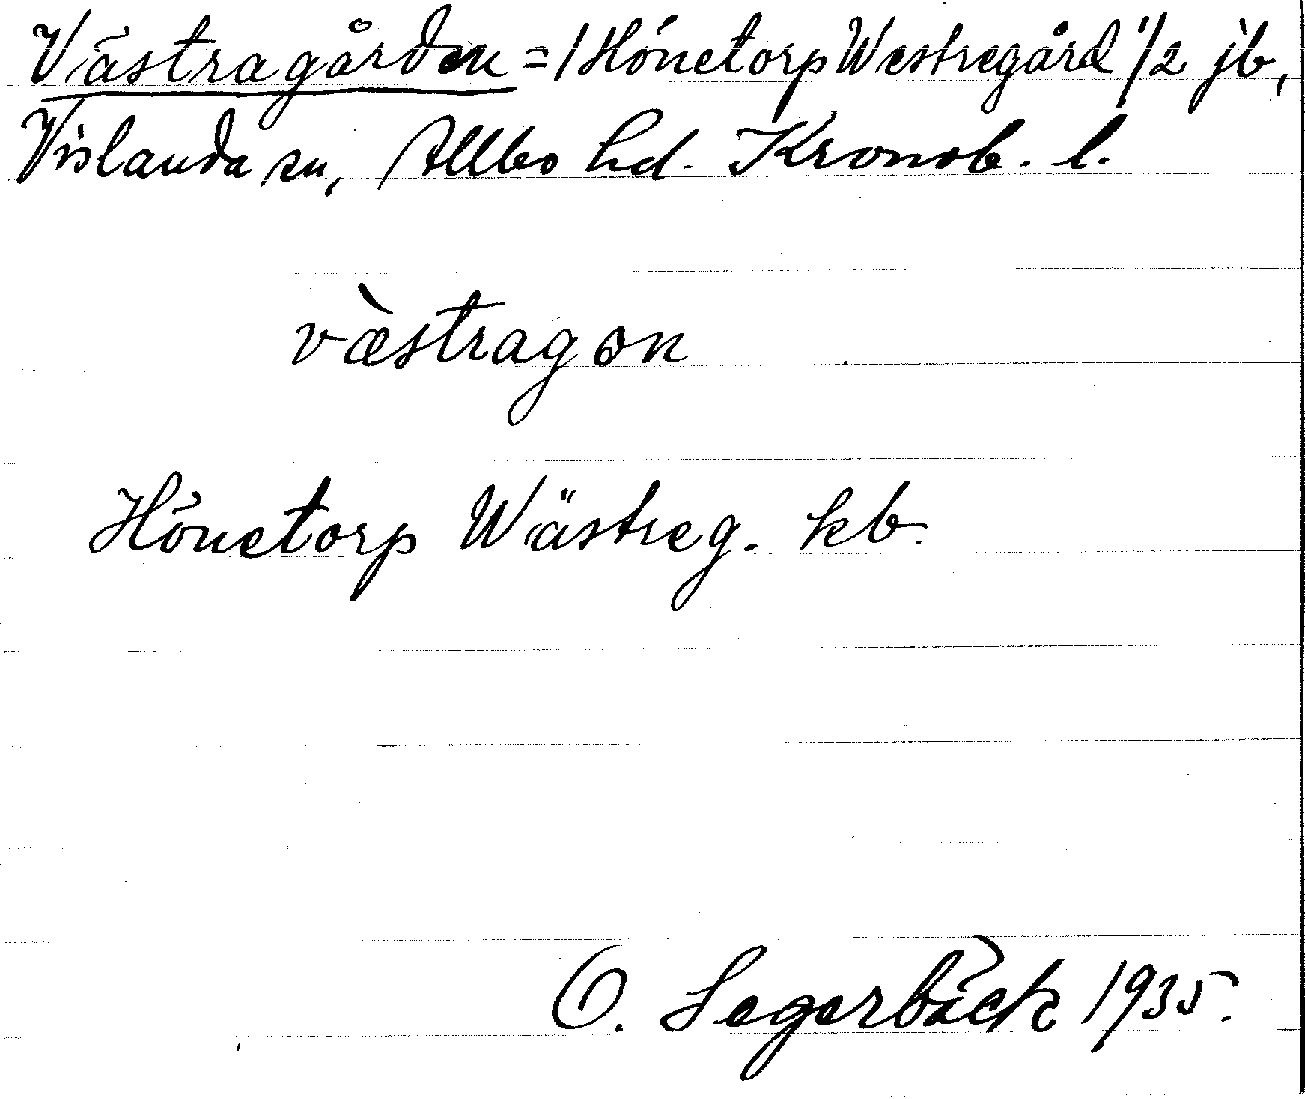 Västragården = /Hónetorp Westregård 1/2 jb,
Vislanda sn, Allbo hd. Kronob. l.
væ̀stragon
Hónetorp Wästreg. kb.
O. Segerbäck 1935.